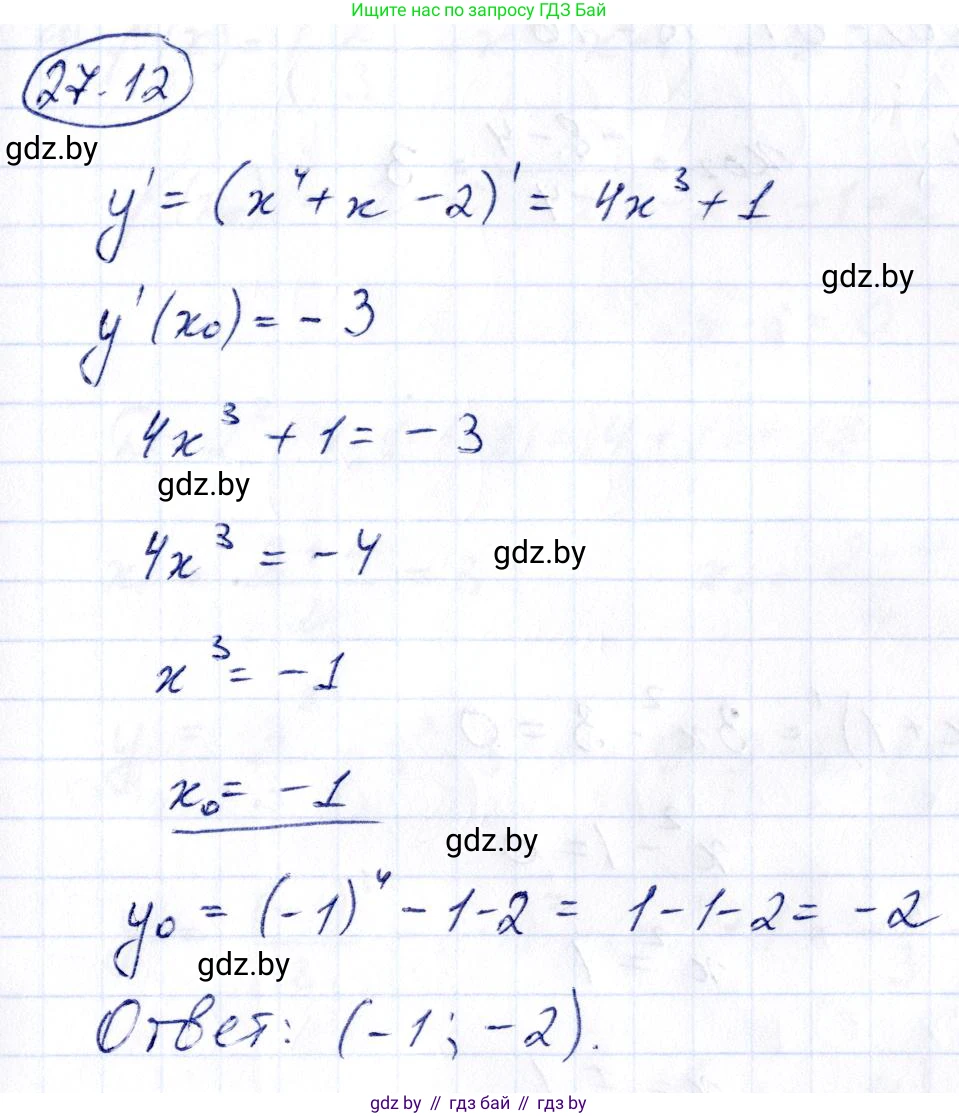 Ищите нас по запросу ГДЗ Бай
27.12
gdz.by
y' = (x⁴ + x - 2)' = 4x³ + 1
gdz.by
y'(x₀) = - 3
4x³ + 1 = - 3
gdz.by
4x³ = - 4
gdz.by
x³ = - 1
x₀ = - 1
gdz.by
y₀ = (-1)⁴ - 1 - 2 = 1 - 1 - 2 = - 2
gdz.by
Ответ: (-1; -2).
gdz.by // гдз бай // gdz by